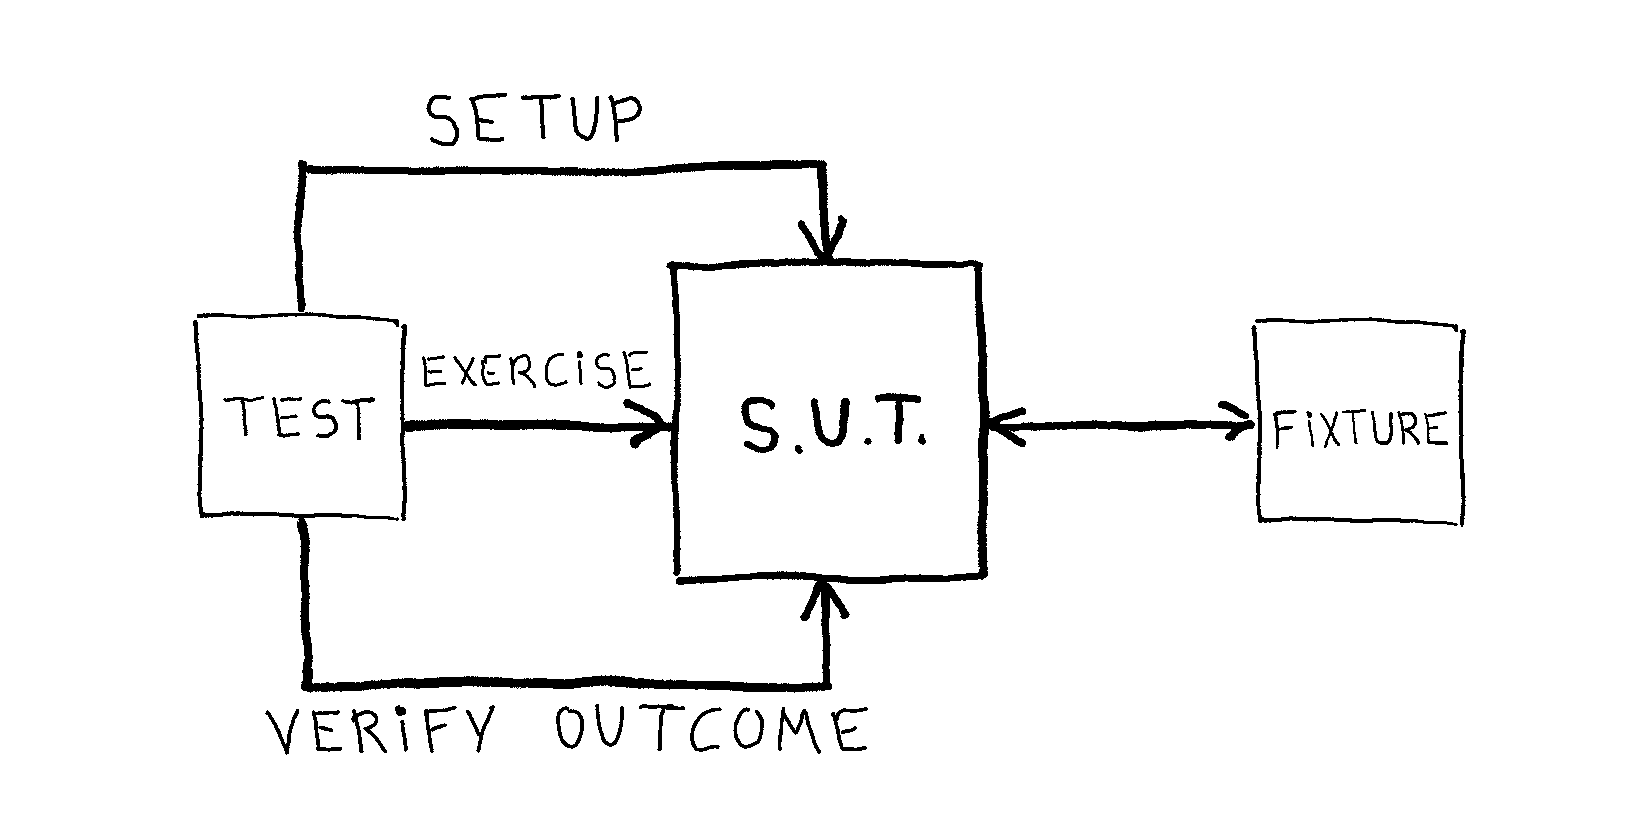 SETUP
EXERCISE
TEST
S.U.T.
FiXTURE
VERiFY OUTCOME